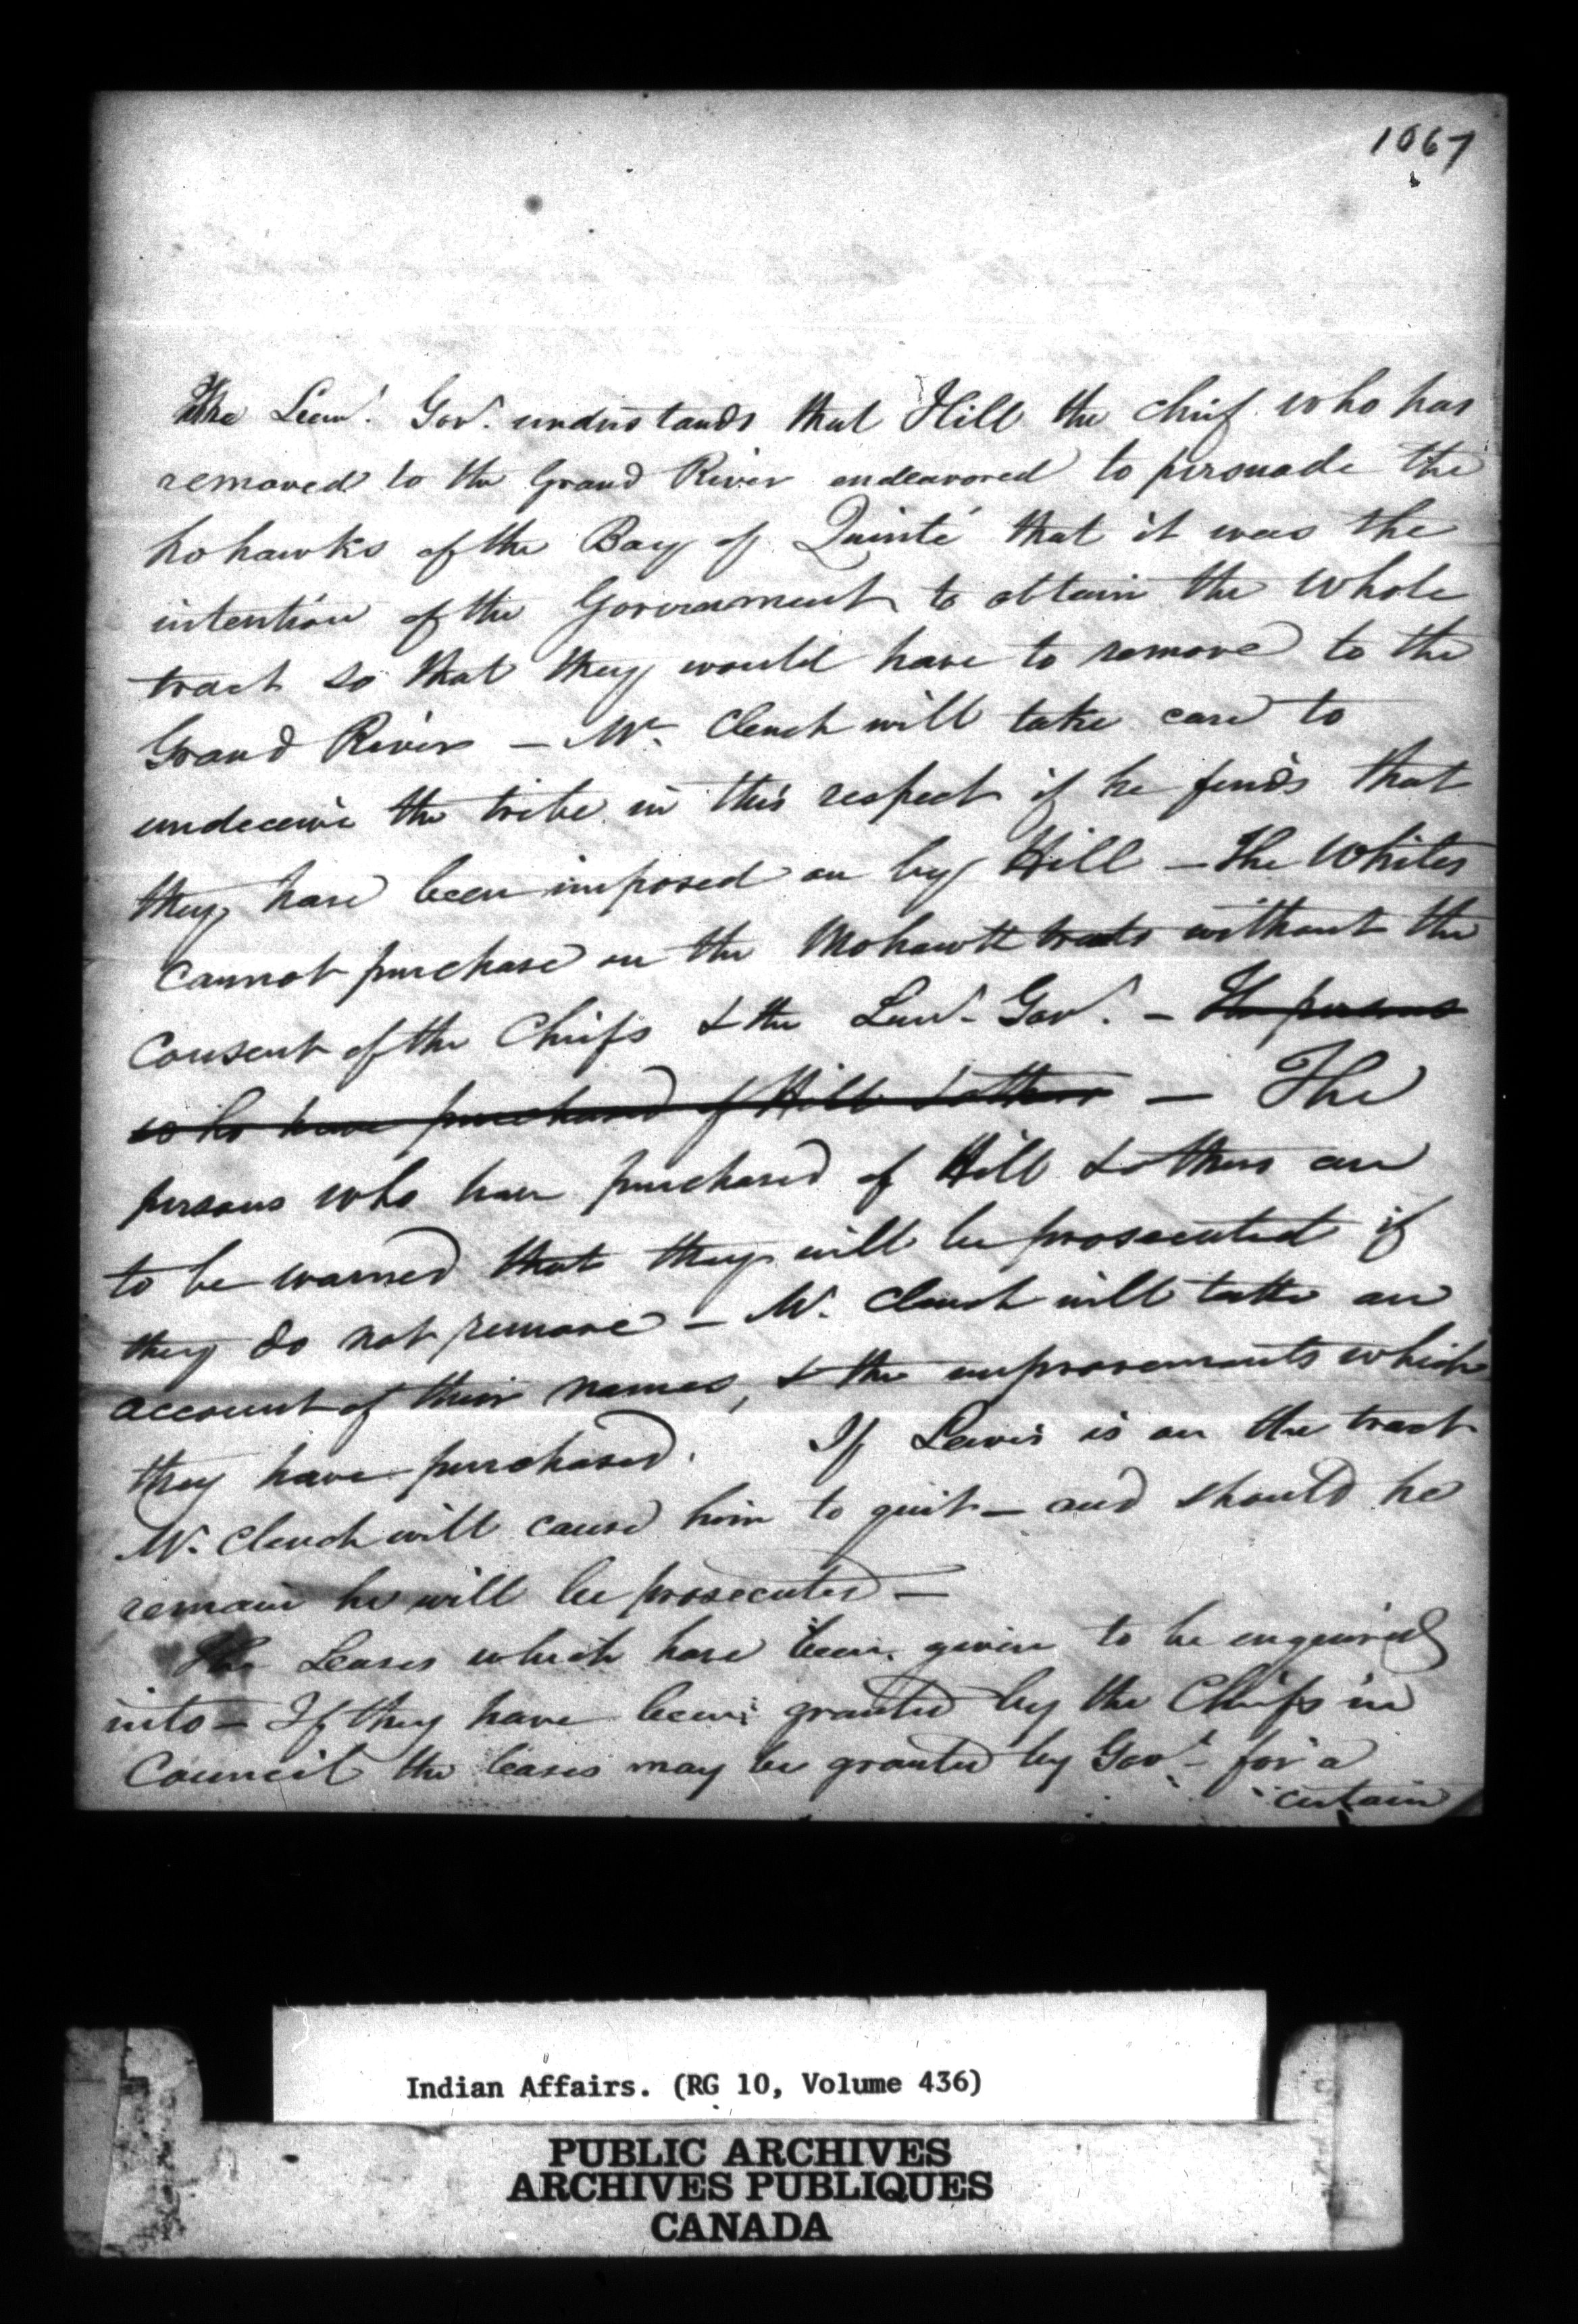 1067
The Lieut. Gov. understands that Hill the Chief who has
removed to the Grand River endeavored to persuade the
Mohawks of the Bay of Quinté that it was the
intention of the Government to obtain the whole
tract so that they would have to remove to the
Grand River — Mr. Clench will take care to
undeceive the tribe in this respect if he finds that
they have been imposed on by Hill — The Whites
cannot purchase on the Mohawk tracts without the
consent of the Chiefs & the Lieut. Gov. — The persons
who have purchased of Hill & others — The
persons who have purchased of Hill & others are
to be warned that they will be prosecuted if
they do not remove — Mr. Clench will take an
account of their names, & the improvements which
they have purchased. If Lewis is on the tract
Mr. Clench will cause him to quit — and should he
remain he will be prosecuted —
The Leases which have been given to be enquired
into — If they have been granted by the Chiefs in
Council the leases may be granted by Govt. for a
certain
Indian Affairs. (RG 10, Volume 436)
PUBLIC ARCHIVES
ARCHIVES PUBLIQUES
CANADA